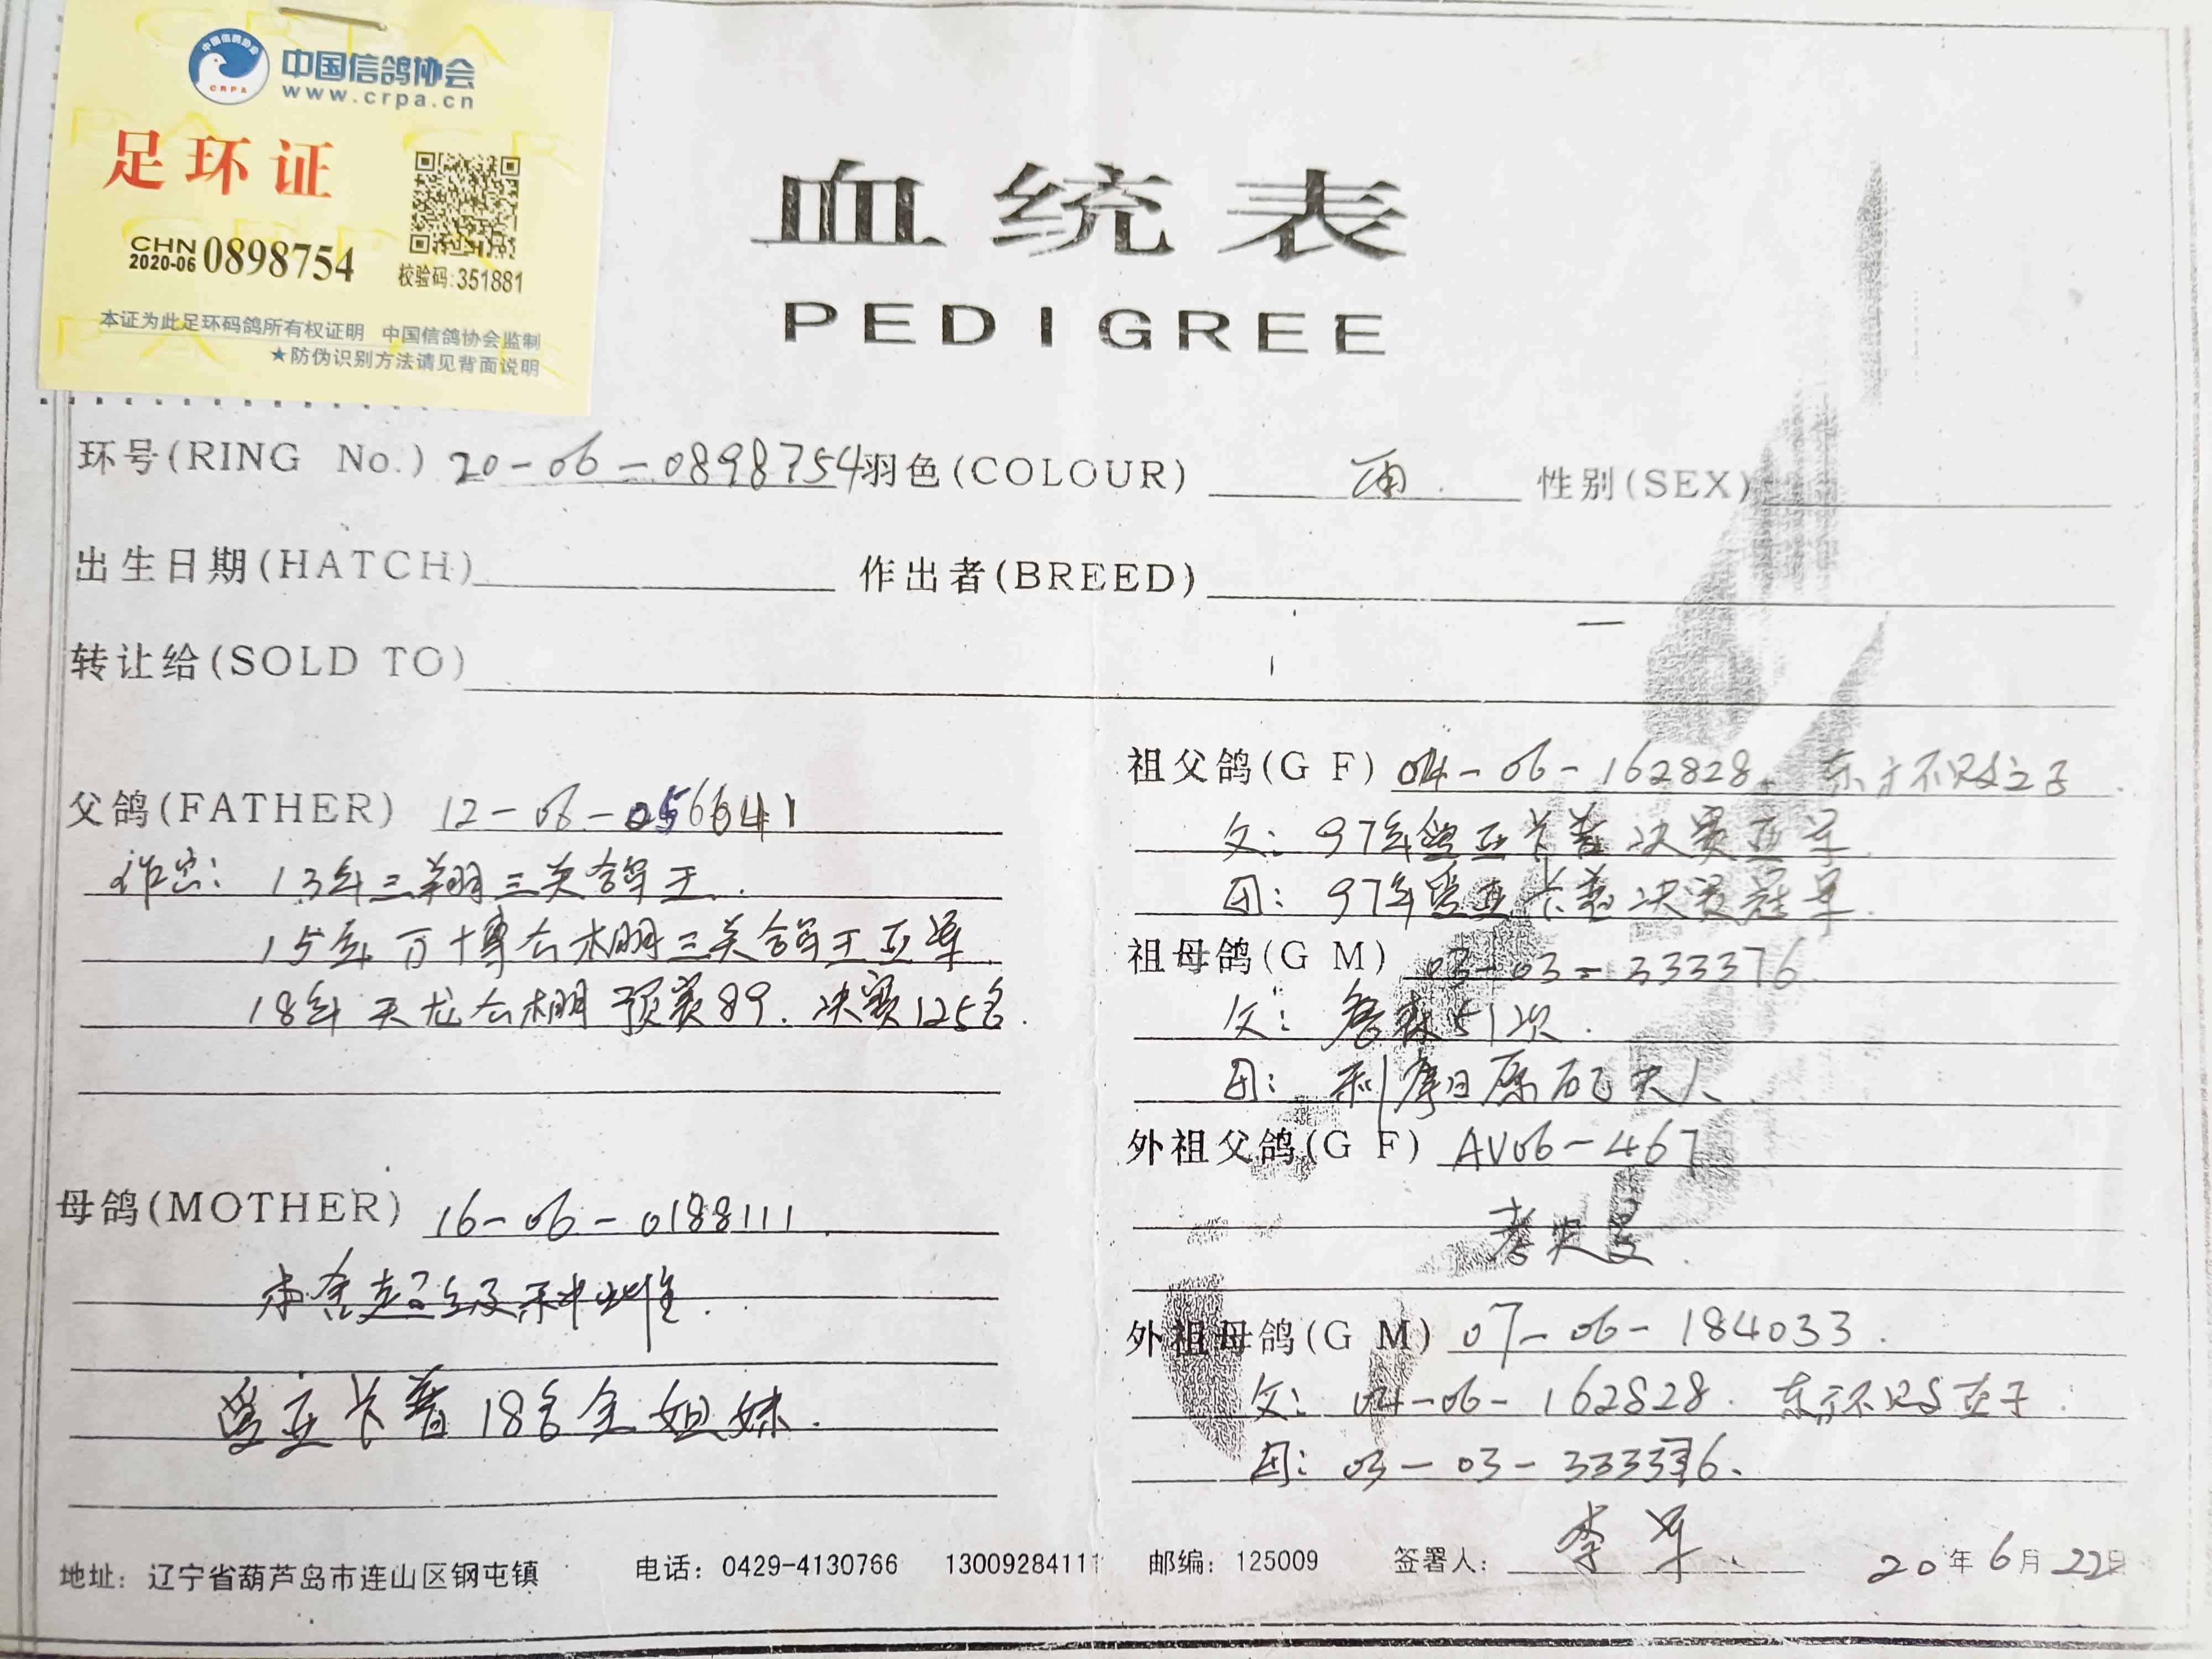 中国信鸽协会
CRPA
www.crpa.cn
足环证
CHN
2020-06 0898754
校验码:351881
本证为此足环码鸽所有权证明 中国信鸽协会监制
★防伪识别方法请见背面说明
血统表
PEDIGREE
环号(RING No.) 20-06-0898754 羽色(COLOUR) 雨. 性别(SEX)
出生日期(HATCH) 作出者(BREED)
转让给(SOLD TO)
父鸽(FATHER) 12-06-0566411
作出: 13年三翔三关鸽王.
15年万十博公棚三关鸽王亚军
18年天龙公棚预赛89. 决赛125名.
母鸽(MOTHER) 16-06-0188111.
本舍超级种雌.
爱亚卡普18名全姐妹.
祖父鸽(G F) 04-06-162828. 东方不败之子.
父: 97年爱亚卡普决赛亚军
母: 97年爱亚卡普决赛冠军.
祖母鸽(G M) 03-03-333376.
父: 詹森51次.
母: 利摩日原配夫人
外祖父鸽(G F) AV06-467
考史曼.
外祖母鸽(G M) 07-06-184033.
父: 04-06-162828. 东方不败直子.
母: 03-03-333376.
地址: 辽宁省葫芦岛市连山区钢屯镇 电话: 0429-4130766 13009284111 邮编: 125009 签署人: 李军 20年6月22日